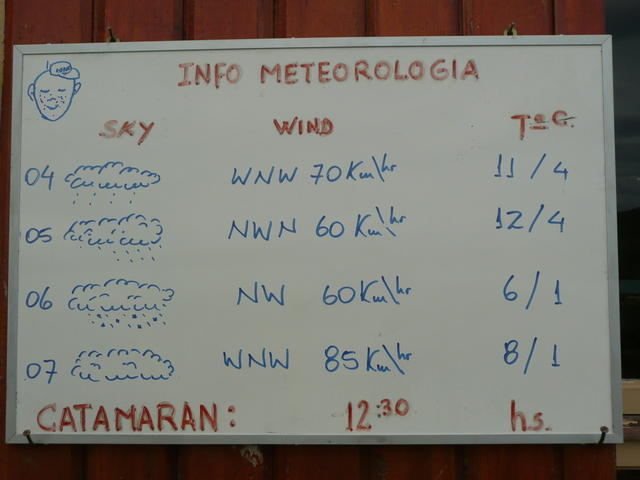 INFO METEOROLOGIA
SKY WIND Tª C.
04 WNW 70 Km\hr 11/4
05 NWN 60 Km\hr 12/4
06 NW 60 Km\hr 6/1
07 WNW 85 Km\hr 8/1
CATAMARAN: 12:30 hs.